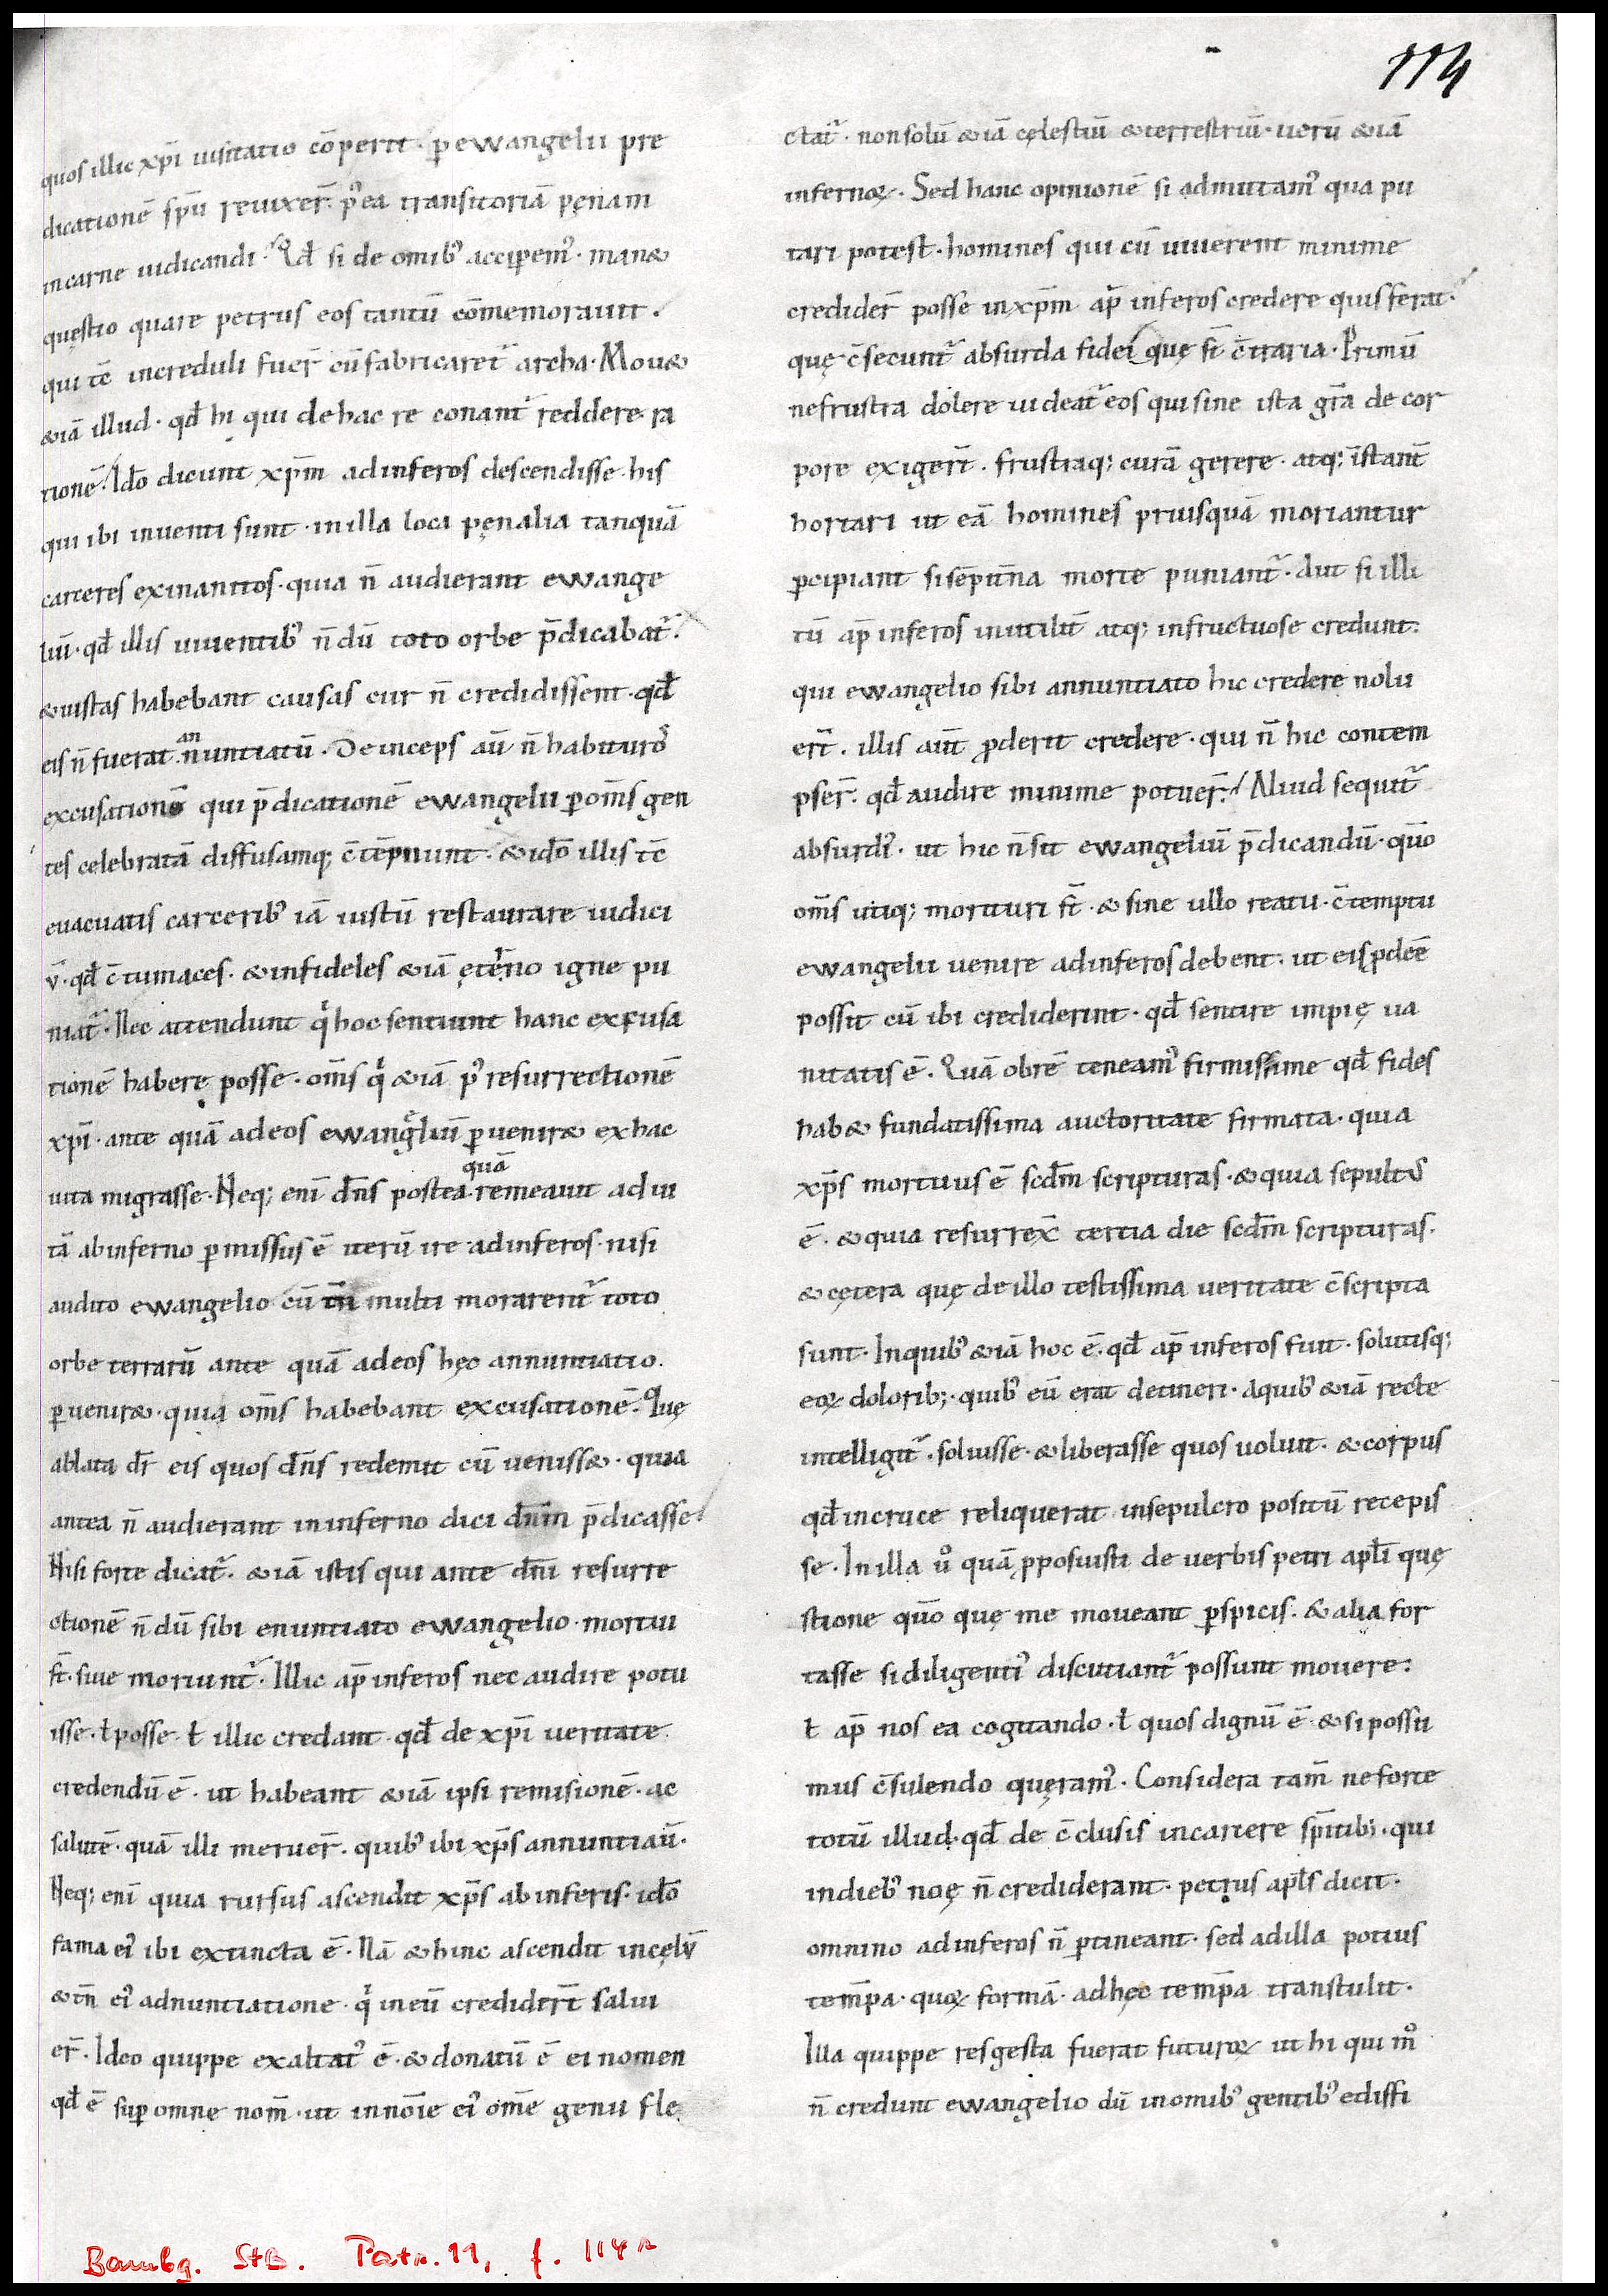 114
quos illic xp̄i uisitatio cōperit · ꝑ ewangelii pre
dicationē sp̄u reuixer̄ · p᷒ ea transitoriā pęnam
in carne iudicandi · Qd̄ si de omib᷒ accipem᷒ · man&
quęstio quare petrus eos tantū cōmemorauit .
qui tc̄ increduli fuer̄ cū fabricaret᷑ archa · Mou&
&iā illud · qd̄ hi qui de hac re conant᷑ reddere ra
tionē · Ido̅ dicunt xp̄m ad inferos descendisse · his
qui ibi inuenti sunt · in illa loca pęnalia tanquā
carceres exinanitos · quia n̄ audierant ewange
liū · qd̄ illis uiuentib᷒ n̄dū toto orbe p̄dicabat᷑ .
& iustas habebant causas cur n̄ credidissent · qd̄
eis n̄ fuerat annuntiatū · Deinceps aū n̄ habituro᷒
excusationē qui p̄dicationē ewangelii ꝑ om̄s gen
tes celebratā diffusamq; c̄tēpnunt · & ido̅ illis tc̄
euacuatis carcerib᷒ iā iustū restaurare iudici
ū · qd̄ c̄tumaces · & infideles &iā ęterno igne pu
niat᷑ · Nec attendunt qͥ hoc sentiunt hanc excusa
tionē habere posse · om̄s qͥ &iā p᷒ resurrectionē
xp̄i · ante quā ad eos ewangliū ꝑuenir& ex hac
uita migrasse · Neq; enī dn̄s postea quā remeauit ad ui
tā ab inferno ꝑmissus ē iterū ire ad inferos · nisi
audito ewangelio cū tn̄ multi morarent᷑ toto
orbe terrarū ante quā ad eos hęc annuntiatio
ꝑuenir& · quia om̄s habebant excusationē · Quę
ablata dr̄ eis quos dn̄s redemit cū ueniss& · quia
antea n̄ audierant in inferno dici dn̄m p̄dicasse
Nisi forte dicat᷑ · &iā istis qui ante dn̄i resurre
ctionē n̄dū sibi enuntiato ewangelio · mortui
st̄ · siue moriunt᷑ · Illic ap̄ inferos nec audire potu
isse · ł posse · ł illic credant · qd̄ de xp̄i ueritate
credendū ē · ut habeant &iā ipsi remisionē · ac
salutē · quā illi meruer̄ · quib᷒ ibi xp̄s annuntiaū ·
Neq; enī quia rursus ascendit xp̄s ab inferis · ido̅
fama ei᷒ ibi extincta ē · Nā & hinc ascendit in cęlū
& tn̄ ei᷒ adnuntiatione · qͥ in eū crediderīt salui
er̄ · Ideo quippe exaltat᷒ ē · & donatū ē ei nomen
qd̄ ē suꝑ omne nom̄ · ut in nōie ei᷒ om̄e genu fle
ctat᷑ · non solū &iā cęlestiū & terrestriū · uerū &iā
infernoꝝ · Sed hanc opinionē si admittam᷒ qua pu
tari potest · homines qui cū uiuerent minime
credider̄ posse in xp̄m ap̄ inferos credere quis ferat ·
quę c̄secunt᷑ absurda fidei quę st̄ c̄traria · Primū
ne frustra dolere uideat᷑ eos qui sine ista gr̄a de cor
pore exigerīt · frustraq; curā gerere · atq; īstant̄
hortari ut eā homines priusquā moriantur
ꝑcipiant si sēpit̄na morte puniant᷑ · Aut si illi
tū ap̄ inferos inutilit̄ atq; infructuose credunt ·
qui ewangelio sibi annuntiato hic credere nolu
er̄t · illis aūt ꝓderit credere · qui n̄ hic contem
pser̄ · qd̄ audire minime potuer̄ · Aliud sequit᷑
absurdi᷒ · ut hic n̄ sit ewangeliū p̄dicandū · quo̅
om̄s utiq; morituri st̄ · & sine ullo reatu · c̄temptu
ewangelii uenire ad inferos debent · ut eis ꝓdeē
possit cū ibi crediderint · qd̄ sentire impię ua
nitatis ē · Quā obrē teneam᷒ firmissime qd̄ fides
hab& fundatissima auctoritate firmata · quia
xp̄s mortuus ē scd̄m scripturas · & quia sepult᷒
ē · & quia resurrex̄ tertia die scd̄m scripturas ·
& cętera quę de illo testissima ueritate c̄scripta
sunt · In quib᷒ &iā hoc ē · qd̄ ap̄ inferos fuit · solutisq;
eoꝝ dolorib; · quib᷒ eū erat detineri · A quib᷒ &iā recte
intelligit᷑ · soluisse · & liberasse quos uoluit · & corpus
qd̄ in cruce reliquerat in sepulcro positū recepis
se · In illa uͦ quā ꝓposuisti de uerbis petri apl̄i quę
stione quo̅ quę me moueant ꝑspicis · & alia for
tasse si diligenti᷒ discutiant᷑ possunt mouere :
ł ap̄ nos ea cogitando · ł quos dignū ē · & si possu
mus c̄sulendo queram᷒ · Considera tam̄ ne forte
totū illud · qd̄ de c̄clusis in carcere sp̄itib; · qui
in dieb᷒ noę n̄ crediderant · petrus apl̄s dicit ·
omnino ad inferos n̄ ꝑtineant · sed ad illa potius
temp̄a · quoꝝ formā · ad hęc temp̄a transtulit ·
Illa quippe res gesta fuerat futuroꝝ ut hi qui mͦ
n̄ credunt ewangelio dū in omib᷒ gentib᷒ ediffi
Bambg. StB. Patr. 11, f. 114r